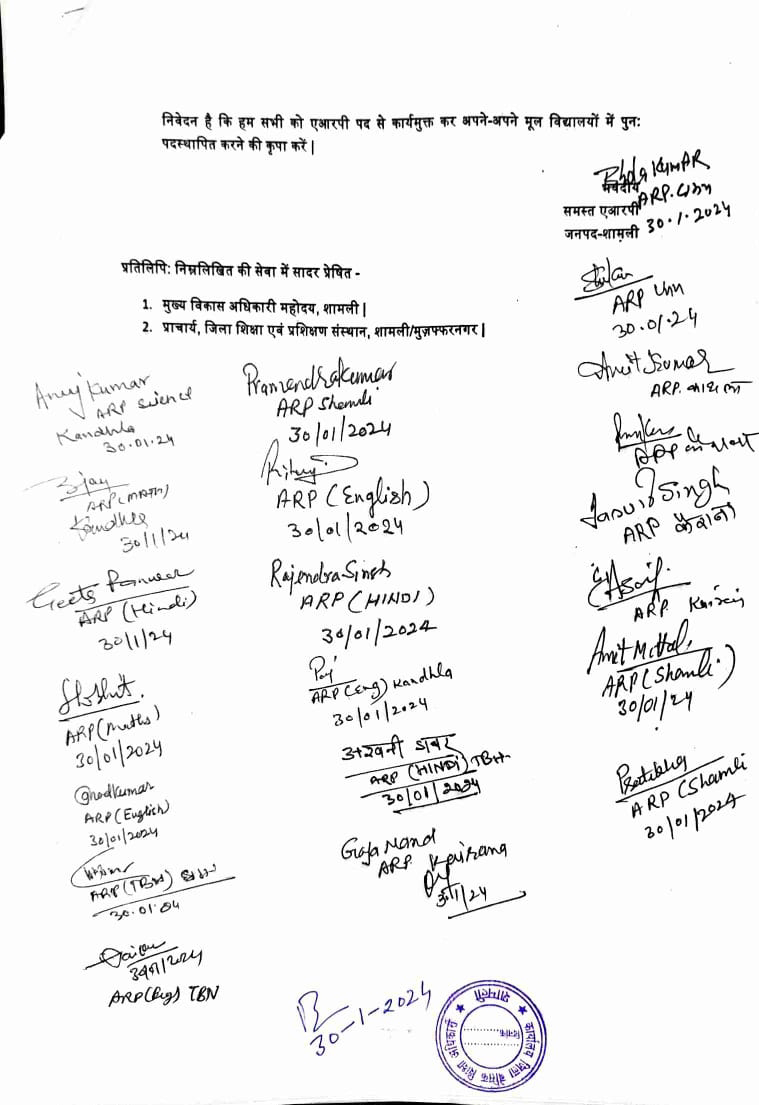 निवेदन है कि हम सभी को एआरपी पद से कार्यमुक्त कर अपने-अपने मूल विद्यालयों में पुनः
पदस्थापित करने की कृपा करें|
KUMAR
भवदीय ARP.
समस्त एआरपी
जनपद-शामली 30.1.2024
प्रतिलिपि: निम्नलिखित की सेवा में सादर प्रेषित -
1. मुख्य विकास अधिकारी महोदय, शामली|
2. प्राचार्य, जिला शिक्षा एवं प्रशिक्षण संस्थान, शामली/मुज़फ्फरनगर|
Anuj Kumar
ARP Science
Kandhla
30.01.24
ARP (MATH)
Kandhla
30/1/24
Geeta Panwar
ARP (Hindi)
30/1/24
ARP (Maths)
30/01/2024
ARP (English)
30/01/2024
ARP (TBN)
30.01.24
ARP (Eng) TBN
Pramendra kumar
ARP Shamli
30/01/2024
ARP (English)
30/01/2024
Rajendra Singh
ARP (HINDI)
30/01/2024
ARP (Eng) Kandhla
30/01/2024
ARP (HINDI) TBN
30/01/2024
Gaja Nand
ARP Kairana
30/1/24
ARP Unn
30.01.24
Amit Kumar
ARP.
ARP
Singh
ARP कैराना
ARP
Amit Mittal
ARP (Shamli)
30/01/24
Pratibha
ARP (Shamli
30/01/2024
30-1-2024
कार्यालय जिला बेसिक शिक्षा अधिकारी
शामली
दिनांक